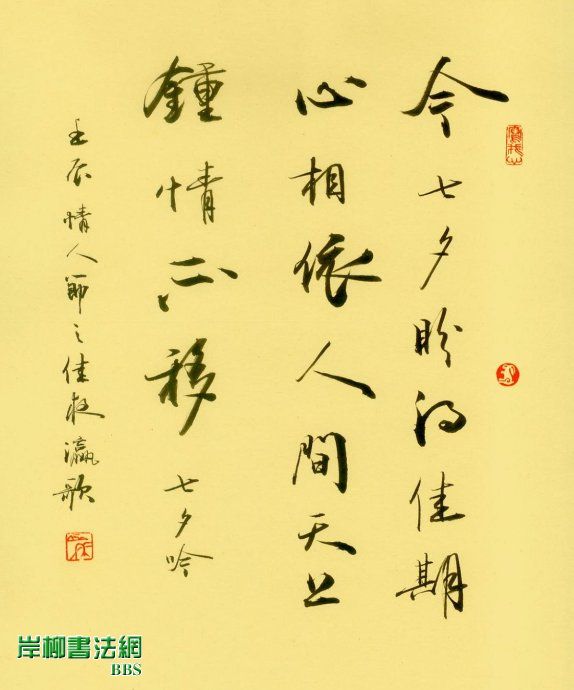 今七夕盼得佳期
心相依人間天上
鍾情不移 七夕吟
壬辰情人節之佳夜瀛歌
岸柳書法網
BBS